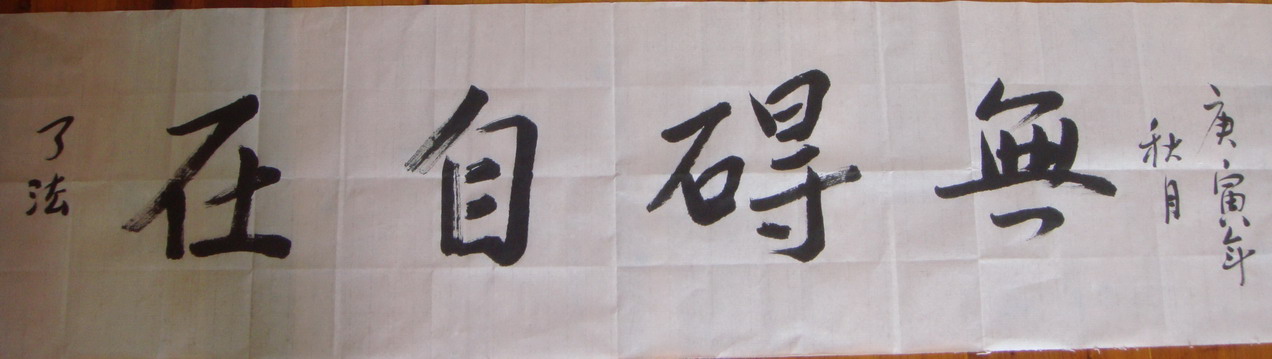 庚寅年
秋月
無碍自在
了法